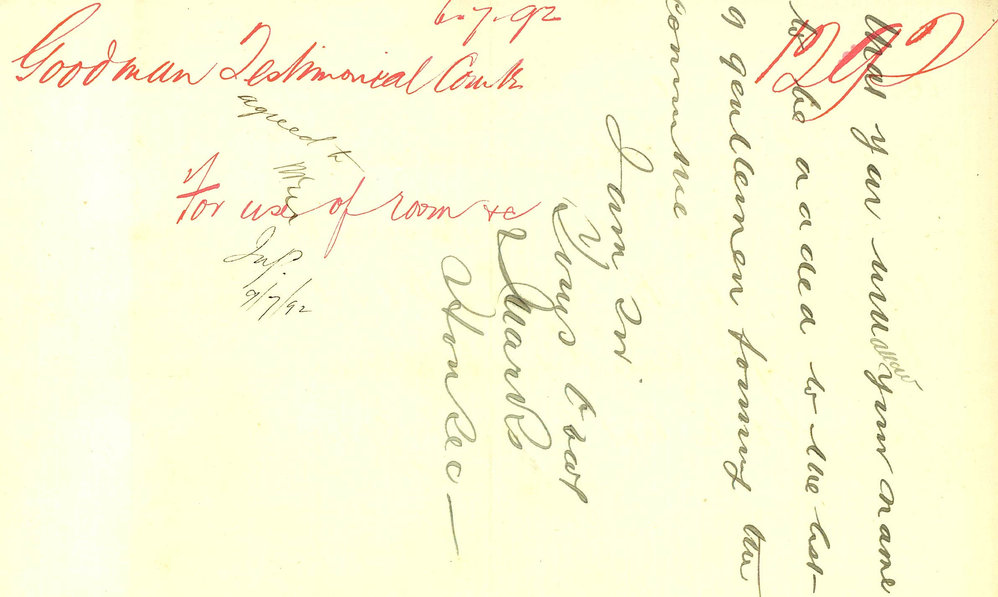 6.7.92
1292
Goodman Testimonial Comte
for use of room &c
agreed to
9/7/92
that you will allow your name
to be added to the list
of gentlemen forming the
committee
I am Sir
Yours truly
Hon Sec —